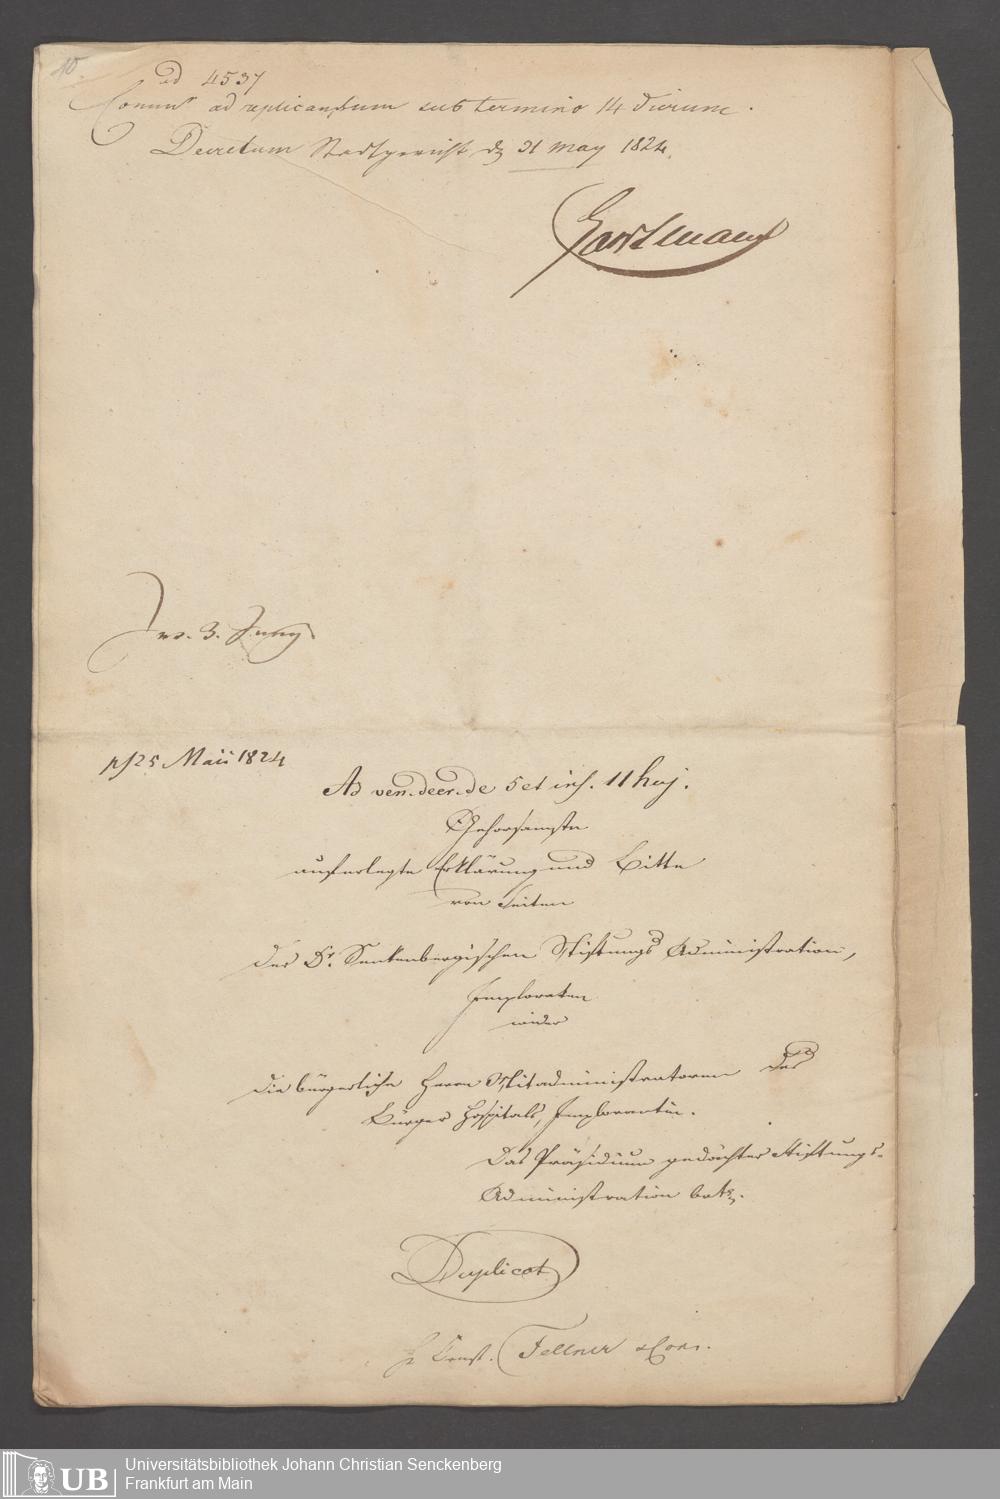 10
ad 4537
Comm. ad replicandum sub termino 14 dierum.
Decretum Stadtgericht d. 31 May 1824.
Hartmann
Ins. 3. Juny
ps 25 Maii 1824
Ad ven. decr. de 5 et ins. 11 huj.
Gehorsamste
auferlegte Erklärung und Bitte
von Seiten
der Dr. Senkenbergischen Stiftungs Administration,
Imploraten
wider
die bürgerliche Herrn Mitadministratoren des
Bürger Hospitals, Imploranten.
Das Präsidium gedachter Stiftungs-
Administration betr.
Duplicat
Fellner & Cons.
UB
Universitätsbibliothek Johann Christian Senckenberg
Frankfurt am Main